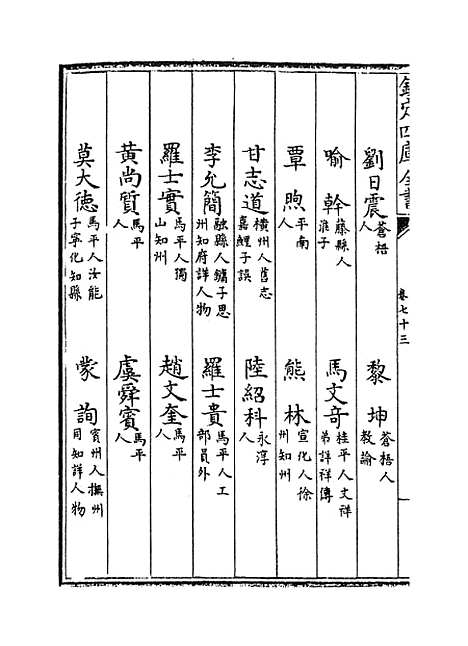 欽定四庫全書
卷七十三
劉日震蒼梧人
黎坤蒼梧人教諭
喻幹藤縣人淮子
馬文奇桂平人文祥弟詳祥傳
覃煦平南人
熊林宣化人徐州知州
甘志道橫州人舊志嘉鯉子誤
陸紹科永淳人
李允簡融縣人鏞子思州知府詳人物
羅士貴馬平人工部員外
羅士實馬平人獨山知州
趙文奎馬平人
黃尚質馬平人
虞舜賓馬平人
莫大德馬平人汝能子寧化知縣
蒙詢賓州人撫州同知詳人物